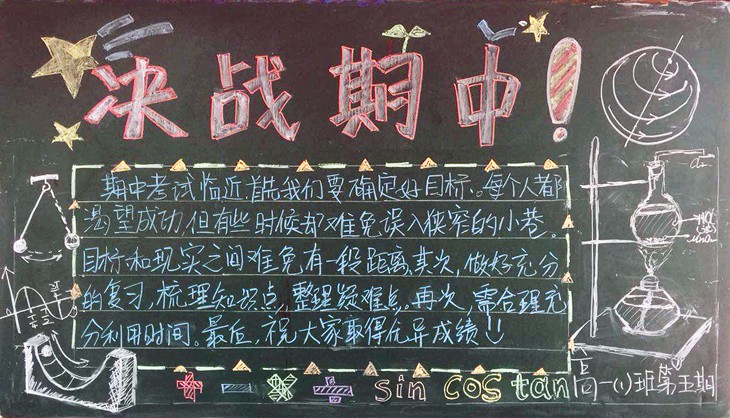 决战期中!
期中考试临近,首先我们要确定好目标。每个人都
渴望成功,但有些时候却难免误入狭窄的小巷。
目标和现实之间难免有一段距离,其次,做好充分
的复习,梳理知识点,整理疑难点。再次,需合理充
分利用时间。最后,祝大家取得优异成绩!
+ - × ÷ sin cos tan
高一(1)班第五期